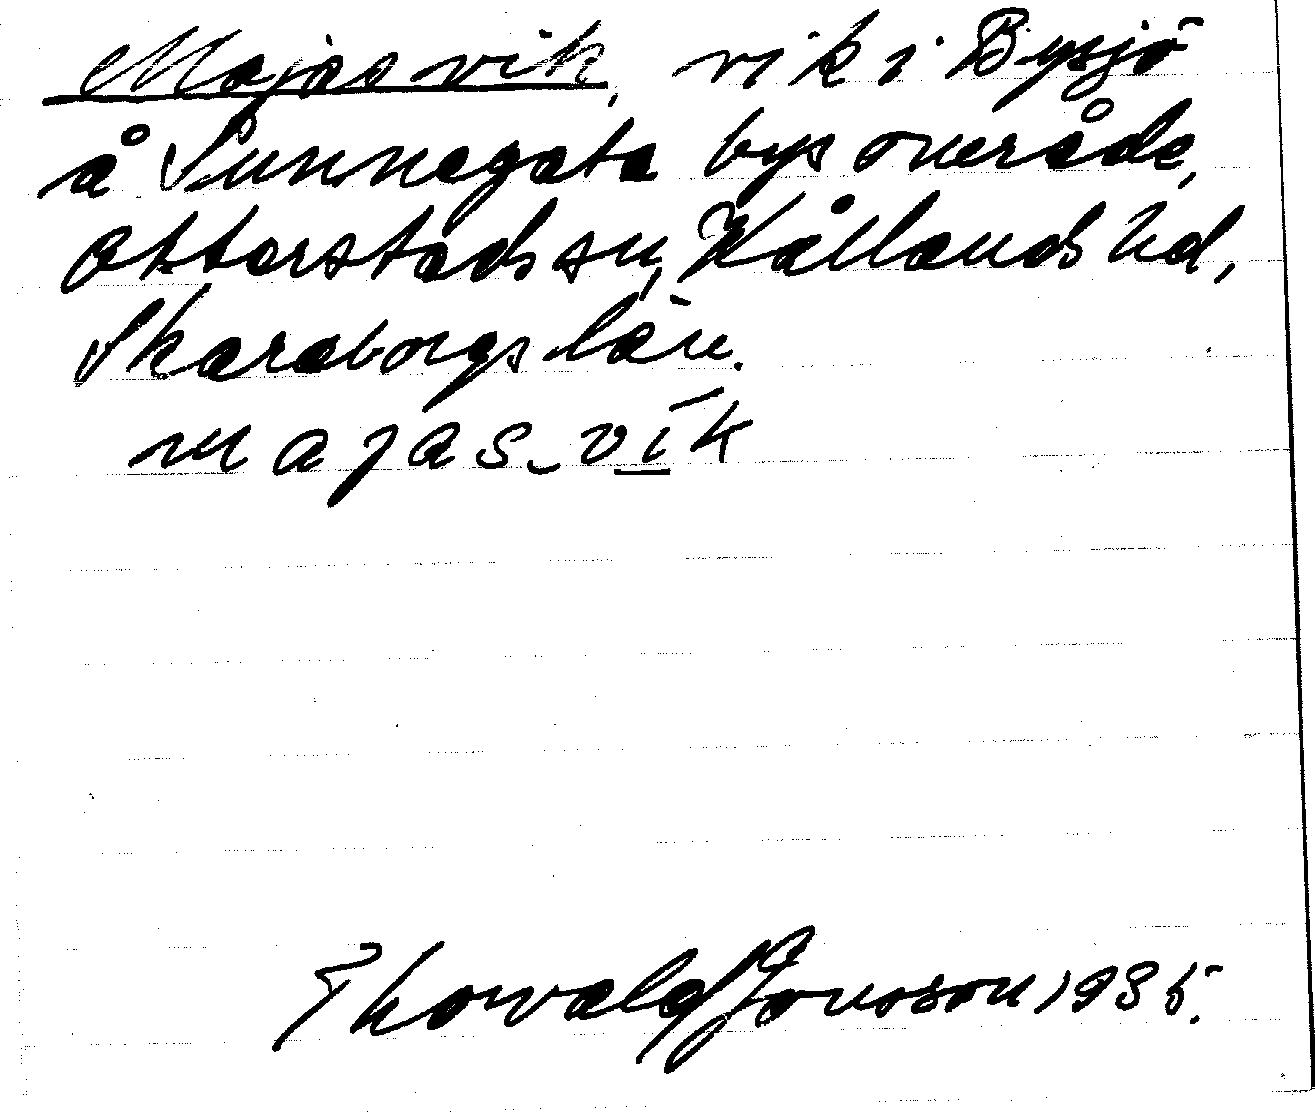 Majas vik, vik i Bysjö
å Sunnegata bys område,
Otterstads sn, Kållands hd,
Skaraborgs län.
majas-vik
Thorvald Jonsson 1935.